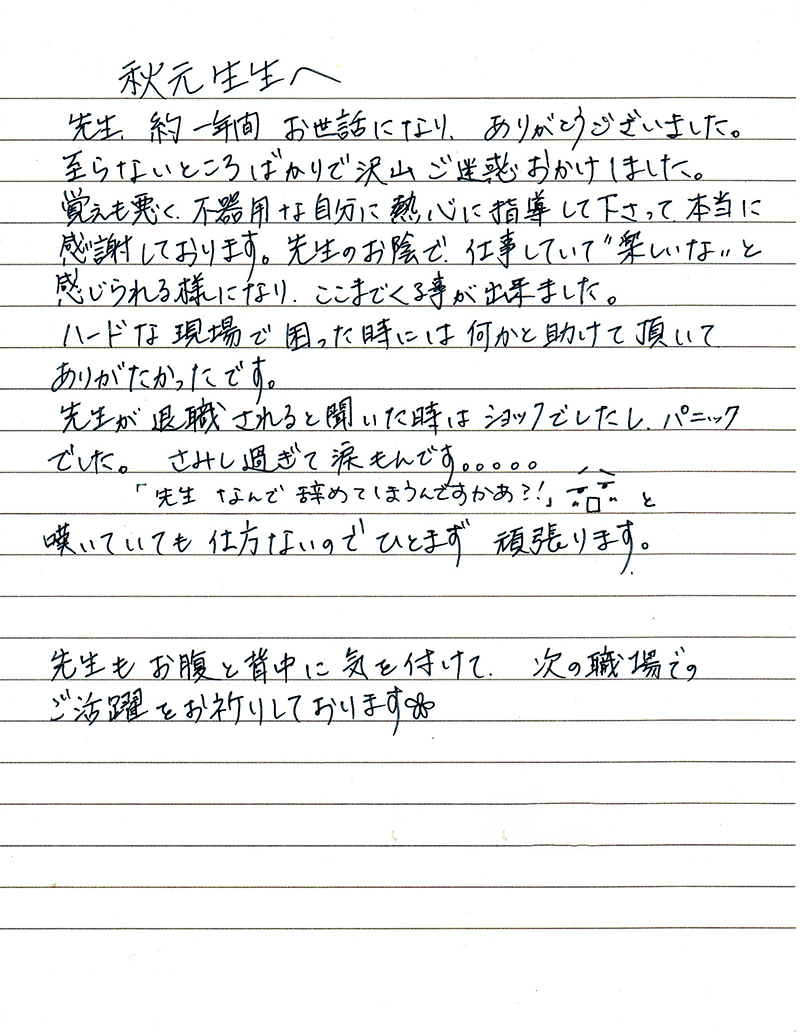 秋元生生へ
先生、約一年間 お世話になり、ありがとうございました。
至らないところばかりで沢山ご迷惑おかけしました。
覚えも悪く、不器用な自分に熱心に指導して下さって、本当に
感謝しております。先生のお陰で、仕事していて"楽しいな"と
感じられる様になり、ここまでくる事が出来ました。
ハードな現場で困った時には何かと助けて頂いて
ありがたかったです。
先生が退職されると聞いた時はショックでしたし、パニック
でした。 さみし過ぎて涙もんです。。。。。
「先生 なんで辞めてしまうんですかあ?!」 と
嘆いていても仕方ないのでひとまず 頑張ります。
先生もお腹と背中に気を付けて、次の職場での
ご活躍をお祈りしております